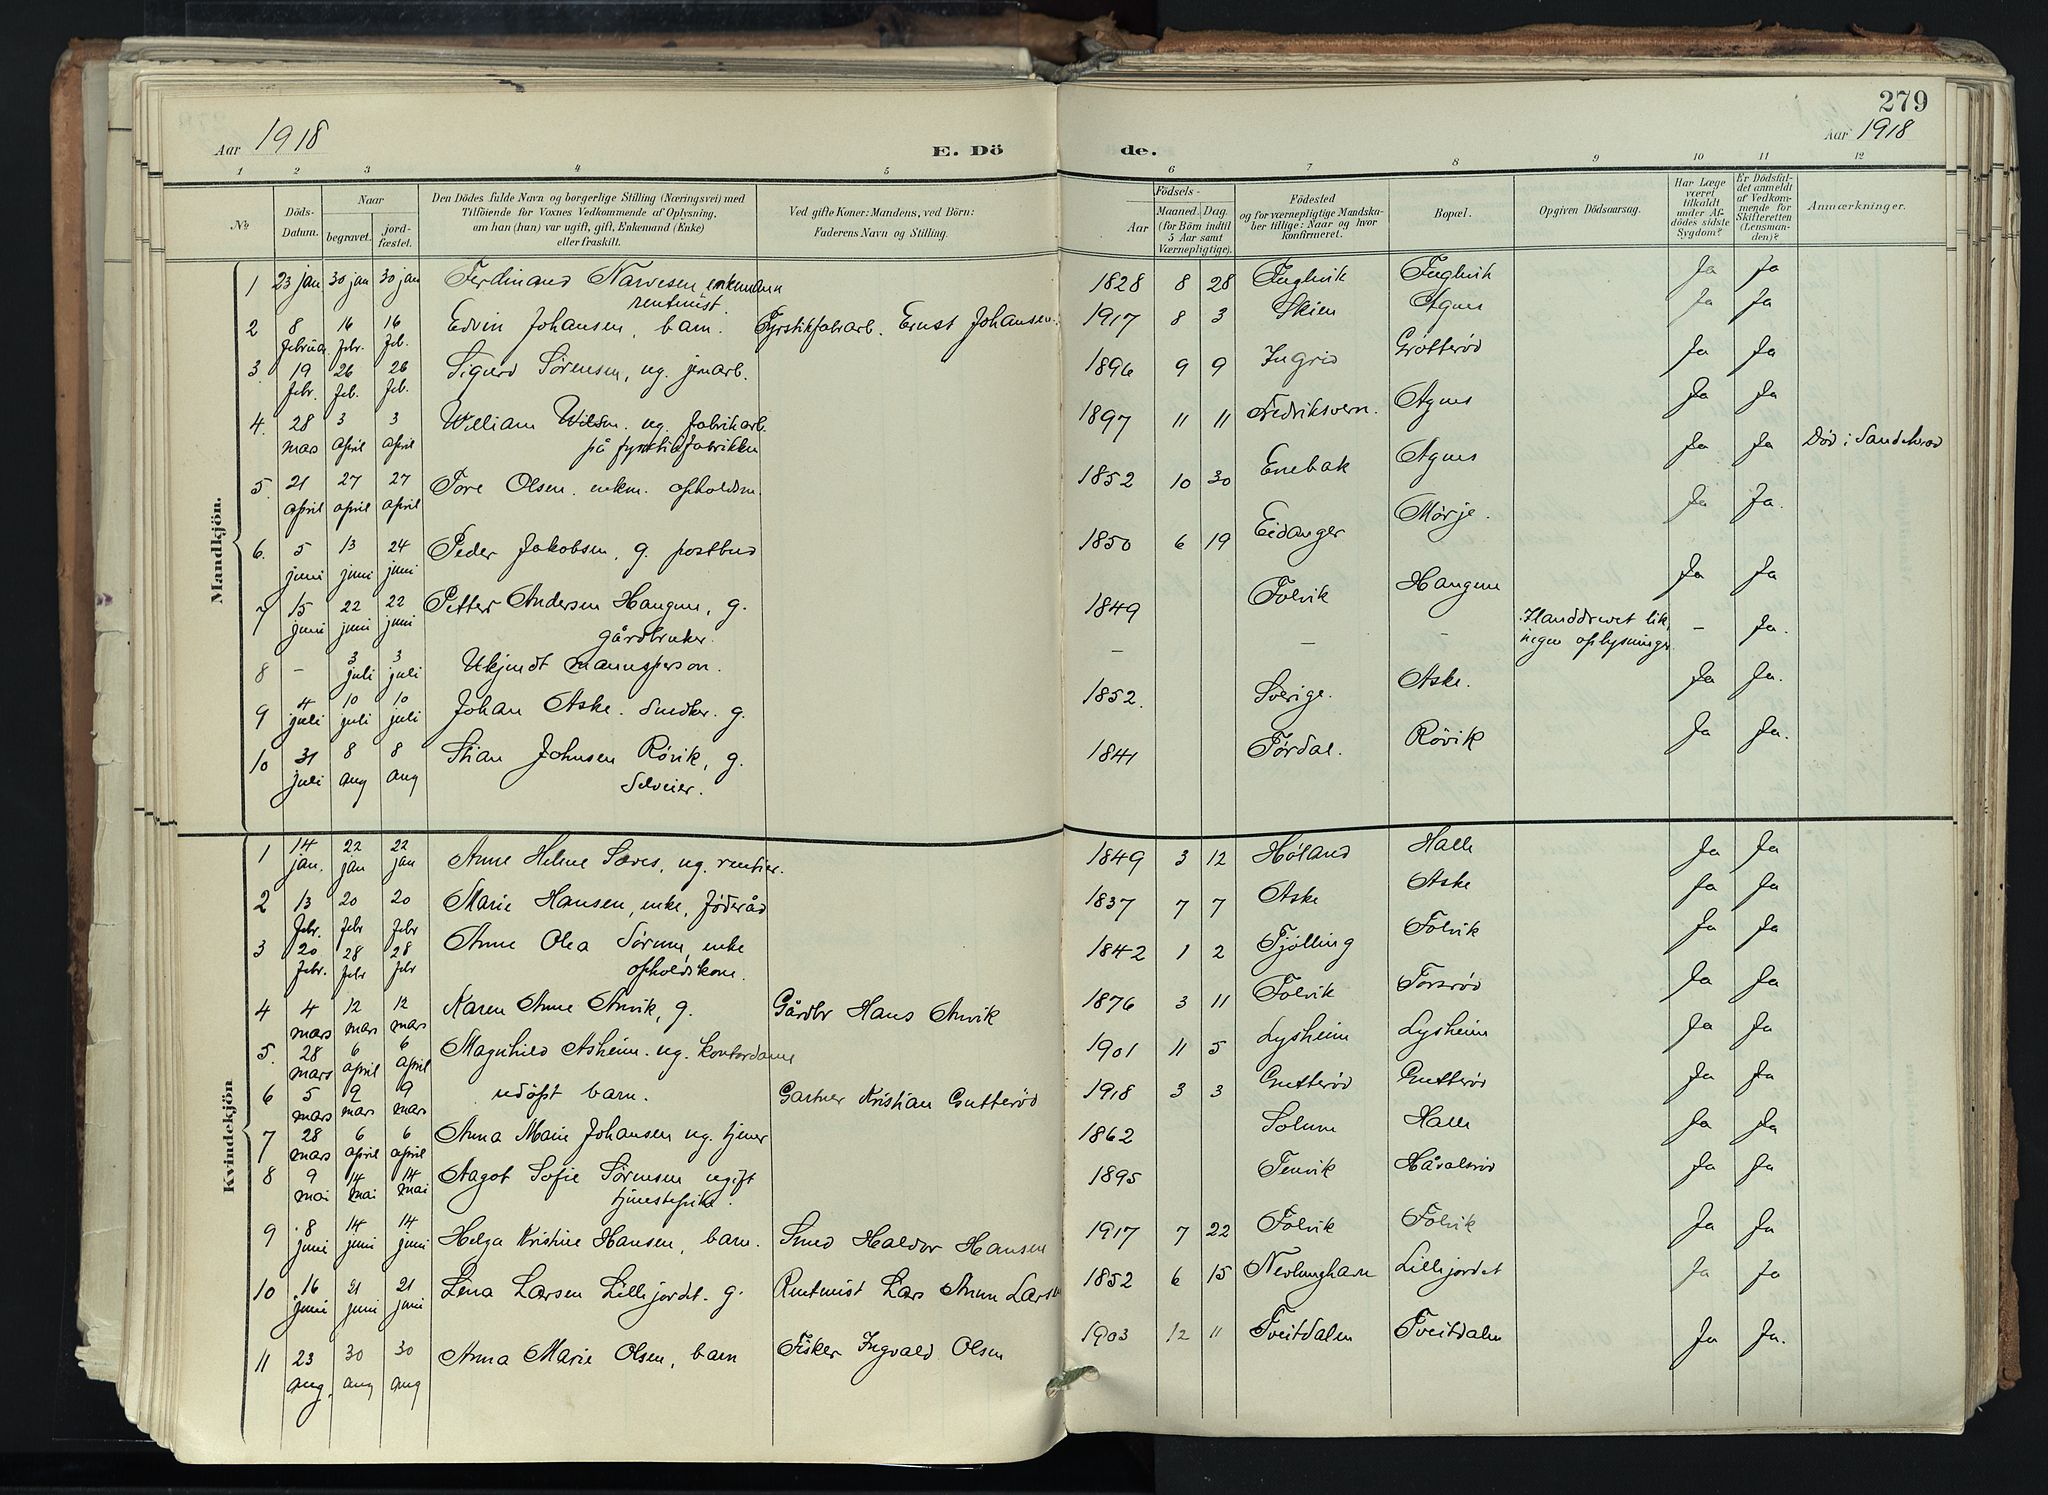 279
Aar 1918
E. Dö de.
Aar 1918
1 2 3 4 5 6 7 8 9 10 11 12
№
Döds-Datum.
Naar
begravet.
jord-fæstet.
Den Dödes fulde Navn og borgerlige Stilling (Næringsvei) med
Tilföiende for Voxnes Vedkommende af Oplysning,
om han (hun) var ugift, gift, Enkemand (Enke)
eller fraskilt.
Ved gifte Koner: Mandens, ved Börn:
Faderens Navn og Stilling.
Födsels-
Aar
Maaned. Dag.
(for Börn indtil
5 Aar samt
Værnepligtige).
Födested
og for værnepligtige Mandska-
ber tillige: Naar og hvor
konfirmeret.
Bopæl.
Opgiven Dödsaarsag.
Har Læge
været
tilkaldt
under Af-
dödes sidste
Sygdom?
Er Dödsfal-
det anmeldt
af Vedkom-
mende for
Skifteretten
(Lensman-
den)?
Anmærkninger.
Mandkjön.
1 23 jan 30 jan 30 jan Ferdinand Narvesen enkemann rentenist. 1828 8 28 Fuglevik Fuglevik Ja Ja
2 8 februar 16 febr. 16 feb. Edvin Johansen, barn. Fyrstikfabarb. Ernst Johansen. 1917 8 3 Skien Agnes Ja Ja
3. 19 febr. 26 feb. 26 feb. Sigurd Sörensen, ug. jernarb. 1896 9 9 Ingrid Grötteröd Ja Ja
4. 28 mas 3 april 3 april William Wilsn. ug. fabrikarb. på fyrstikfabrikken 1897 11 11 Fredriksvern. Agnes Ja Ja
5. 21 april 27 april 27 april Tore Olsen. enkm. opholdsm. 1852 10 30 Enebak Agnes Ja Ja Död i Sandehered
6. 5 juni 13 juni 24 juni Peder Jakobsen, g. postbud 1850 6 19 Eidanger Mörje. Ja Ja.
7 15 juni 22 juni 22 juni Petter Andersen Haugene, g. gårdbruker. 1849 Folvik Haugene Ja Ja
8 - 3 juli 3 juli Ukjendt mannsperson. - - - Ilanddrevet lik, ingen oplysninger - Ja.
9 4 juli 10 juli 10 juli Johan Aske. Snedker. g. 1852. Sverige. Aske. Ja Ja.
10 31 juli 8 aug 8 aug Stian Johnsen Rövik, g. Selveier. 1841 Tördal. Rövik Ja Ja.
Kvindekjön
1 14 jan. 22 jan 22 jan Anne Helene Sæves, ug. rentier. 1849 3 12 Höland Halle Ja Ja
2 13 febr. 20 febr 20 febr Marie Hansen, enke, föderåd 1837 7 7 Aske Aske Ja Ja
3 20 febr. 28 febr 28 febr Anne Olea Sörum, enke opholdskone. 1842 1 2 Tjölling Folvik Ja Ja
4 4 mars 12 mars 12 mars Karen Anne Anvik, g. Gårdbr Hans Anvik 1876 3 11 Folvik Torsröd Ja Ja
5. 28 mars 6 april 6 april Magnhild Asheim. ug. kontordame 1901 11 5 Lysheim Lysheim Ja Ja
6 5 mars 9 mars 9 mars udöpt barn. Gartner Kristian Gutteröd 1918 3 3 Gutteröd Gutteröd Ja Ja
7 28 mars 6 april 6 april Anna Marie Johansen ug. tjener 1862 Solum Halle Ja Ja
8 9 mai 14 mai 14 mai Aagot Sofie Sörensen ugift tjenestepike. 1895 Tenvik Håvalsröd Ja Ja
9 8 juni 14 juni 14 juni Helga Kristine Hansen, barn. Smed Haldor Hansen 1917 7 22 Folvik Folvik Ja Ja
10 16 juni 21 juni 21 juni Lena Larsen Lillejordet. g. Rentenist Lars Anun Larsen 1852 6 15 Nevlunghavn Lillejordet Ja Ja
11 23 aug. 30 aug 30 aug Anna Marie Olsen, barn Fisker Ingvald Olsen 1903 12 11 Tveitdalen Tveitdalen Ja Ja.